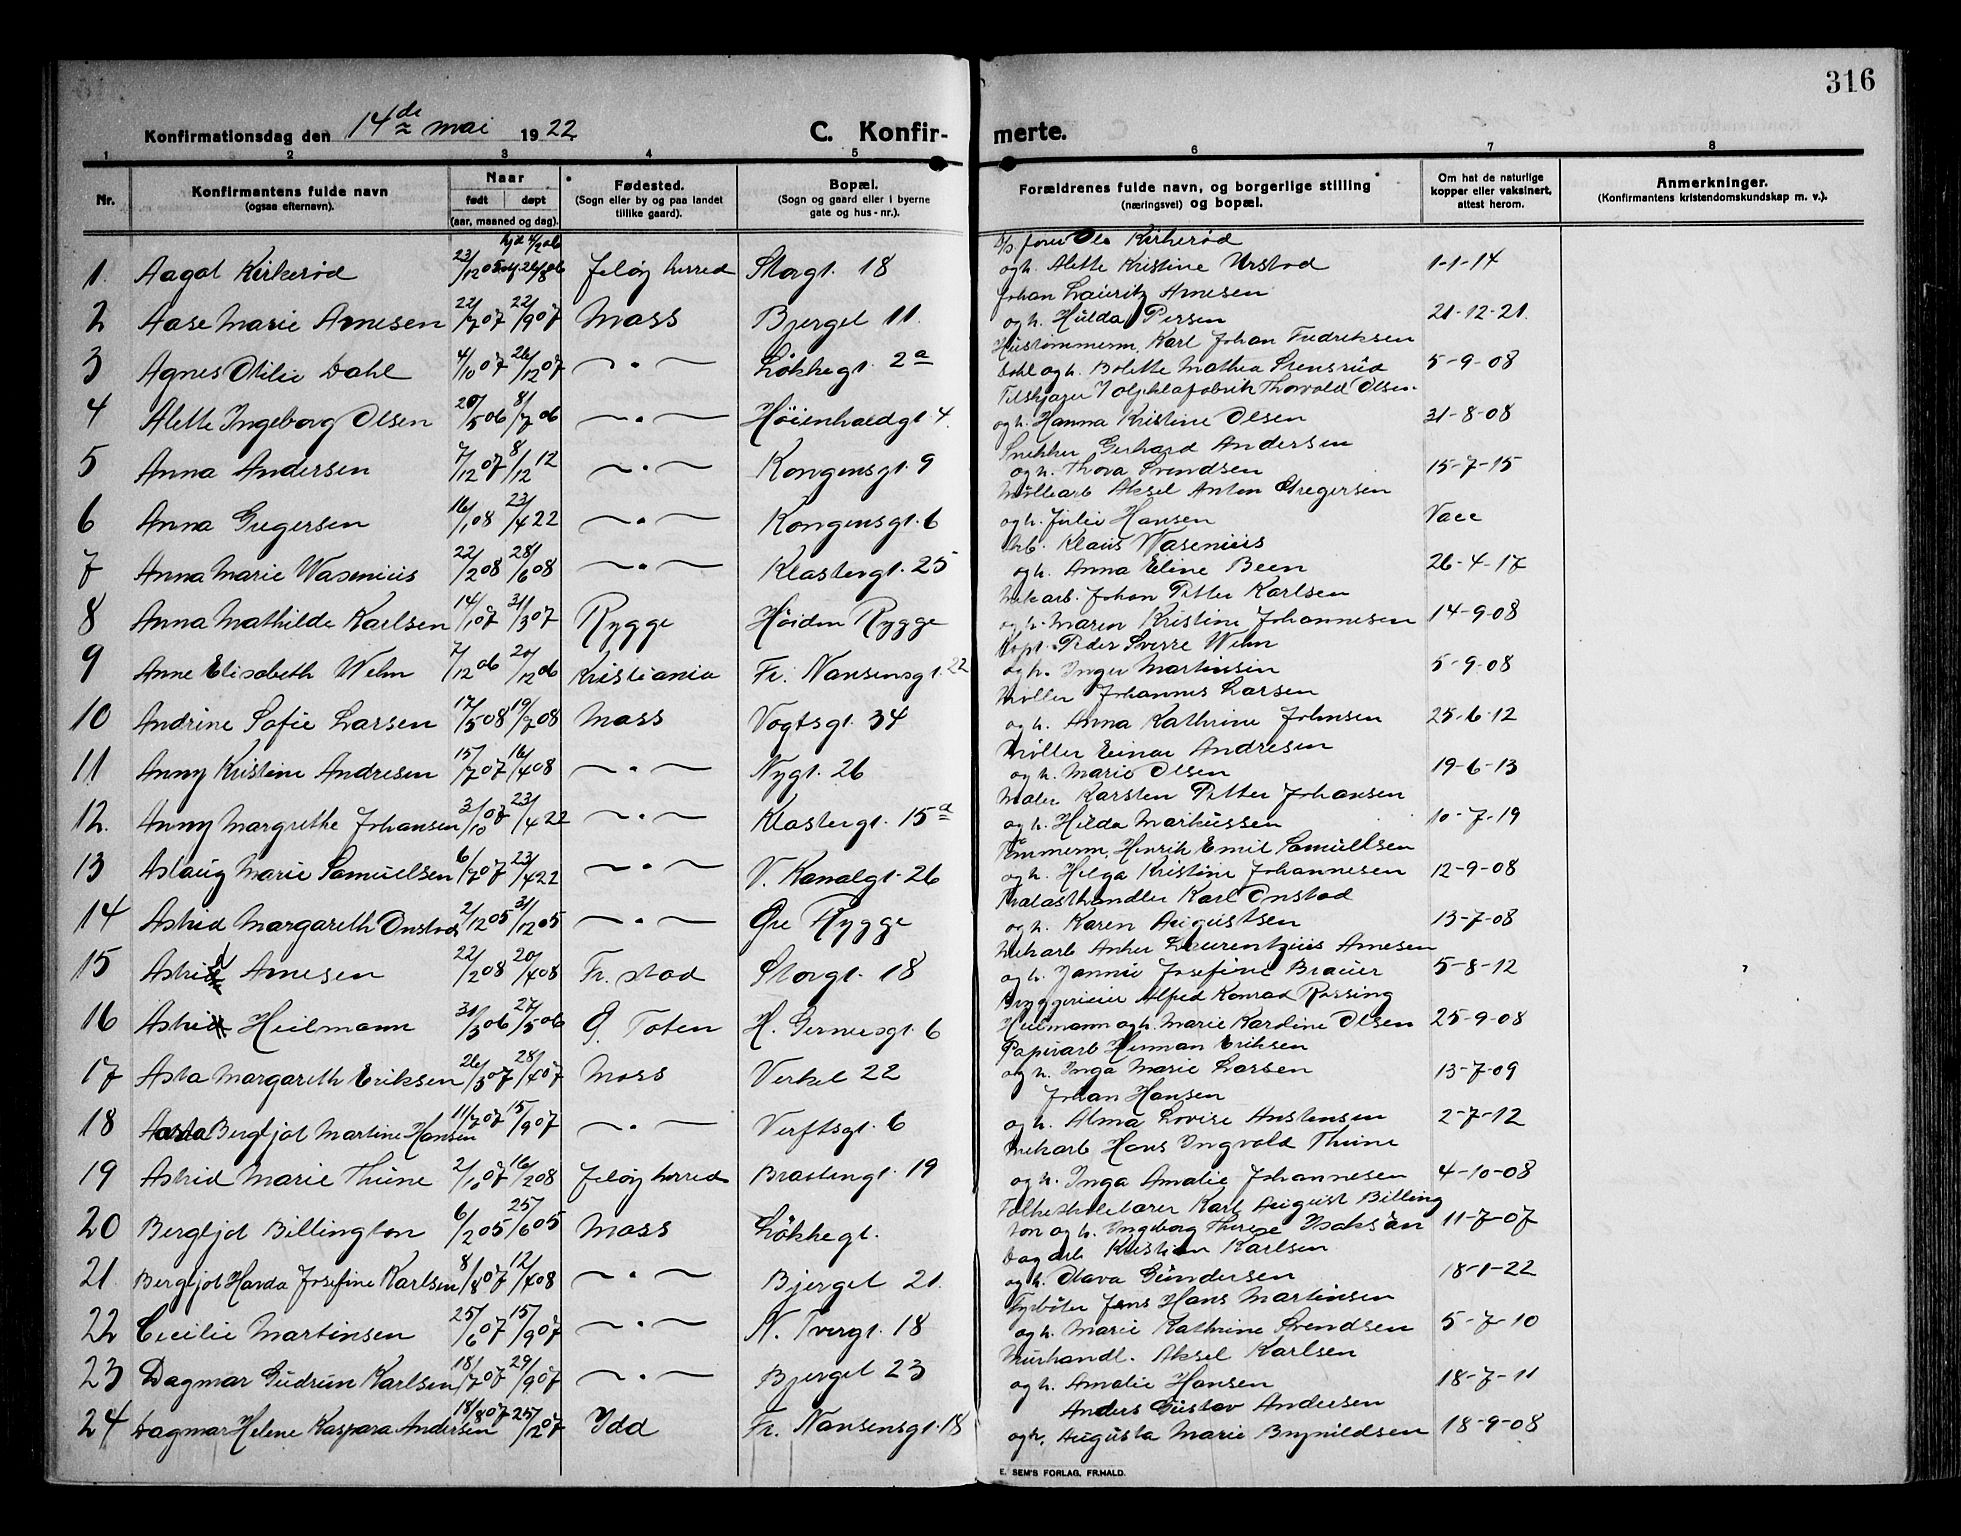 316
Konfirmationsdag den 14de mai 1922
C. Konfir-
merte.
1 2 3 4 5 6 7 8
Nr.
Konfirmantens fulde navn
(ogsaa efternavn).
Naar
født døpt
(aar, maaned og dag).
Fødested.
(Sogn eller by og paa landet
tillike gaard).
Bopæl.
(Sogn og gaard eller i byerne
gate og hus-nr.).
Forældrenes fulde navn, og borgerlige stilling
(næringsvei) og bopæl.
Om hat de naturlige
kopper eller vaksinert,
attest herom.
Anmerkninger.
(Konfirmantens kristendomskundskap m. v.).
Ole Kirkerød
1. Aagot Kirkerød 23/12 05 Jeløy herred Storgt. 18 og h. Alette Kristine Urstad 1-1-14
Johan Lauritz Arnesen
2 Aase Marie Arnesen 22/7 07 22/9 07 Moss Bjerget 11. og h. Hulda Persen 21-12-21.
Hustømmerm. Karl Johan Fredriksen
3 Agnes Otilie Dahl 4/10 07 26/12 07 —„— Løkkegt. 2a Dahl og h. Bolette Mathea Stensrud 5-9-08
Thorvald Olsen
4 Alette Ingeborg Olsen 20/5 06 8/7 06 —„— Høienhaldgt. 4. og h. Hanna Kristine Olsen 31-8-08
Snekker Gerhard Andersen
5 Anna Andersen 7/12 07 8/12 12 —„— Kongensgt. 9 og h. Thora Svendsen 15-7-15
Møllearb Aksel Anton Gregersen
6 Anna Gregersen 16/1 08 23/4 22 —„— Kongensgt. 6 og h. Julie Hansen Vacc
Arb. Klaus Wasenius
7 Anna Marie Wasenius 22/2 08 28/6 08 —„— Klostergt. 25 og h. Anna Eline Been 26-4-17
Mekarb. Johan Petter Karlsen
8 Anna Mathilde Karlsen 14/1 07 31/3 07 Rygge Høiden Rygge og h. Maren Kristine Johannesen 14-9-08
Kapt. Peder Sverre Wehn
9 Anne Elisabeth Wehn 7/12 06 20/12 06 Kristiania Fr. Nansensgt. 22 og h. Inger Martinsen 5-9-08
Møller Johannes Larsen
10 Andrine Sofie Larsen 17/5 08 19/7 08 Moss Vogtsgt. 34 og h. Anna Kathrine Johnsen 25-6-12
Møller Einar Andresen
11 Anny Kristine Andresen 15/7 07 16/4 08 —„— Nygt. 26 og h. Marie Olsen 19-6-13
Maler Karsten Petter Johansen
12. Anny Margrethe Johansen 3/10 07 23/4 22 —„— Klostergt. 15a og h. Hilda Markussen 10-7-19
Tømmerm. Henrik Emil Samuelsen
13 Aslaug Marie Samuelsen 6/7 07 23/4 22 —„— V. Kanalgt. 26 og h. Helga Kristine Johannesen 12-9-08
Trælasthandler Karl Onstad
14 Astrid Margareth Onstad 2/12 05 31/12 05 —„— Øre Rygge og h. Karen Augustsen 13-7-08
Mekarb Anker Laurentzius Arnesen
15 Astrid Arnesen 22/2 08 20/4 08 Fr. stad Storgt. 18 og h. Jannie Josefine Brauer 5-8-12
Bryggerieier Alfred Konrad Rossing
16 Astrid Heilmann 31/3 06 27/5 06 Ø. Toten H. Gernersgt. 6 Heilmann og h. Marie Karoline Olsen 25-9-08
Papirarb Herman Eriksen
17 Asta Margareth Eriksen 26/3 07 28/4 07 Moss Verket 22 og h. Inga Marie Larsen 13-7-09
Johan Hansen
18 Aasta Bergljot Martine Hansen 11/7 07 15/9 07 —„— Verftsgt. 6 og h. Alma Lovise Anstensen 2-7-12
Mekarb Hans Ingvald Thune
19 Astrid Marie Thune 2/10 07 16/2 08 Jeløy herred Brastengt. 19 og h. Inga Amalie Johannesen 4-10-08
Folkeskolelærer Karl August Billing
20 Bergljot Billington 6/2 05 25/6 05 Moss Løkkegt. ton og h. Ingeborg Therese Isaksen 11-7-07
Dagarb Kristian Karlsen
21. Bergljot Harda Josefine Karlsen 8/8 07 12/4 08 —„— Bjerget 21. og h. Olava Gundersen 18-1-22
Fyrbøter Jens Hans Martinsen
22 Cecilie Martinsen 25/6 07 15/9 07 —„— N. Tvergt. 18 og h. Marie Kathrine Svendsen 5-7-10
Murhandl. Aksel Karlsen
23 Dagmar Gudrun Karlsen 18/7 07 29/9 07 —„— Bjerget 23 og h. Amalie Hansen 18-7-11
Anders Gustav Andersen
24 Dagmar Helene Kaspara Andersen 18/8 07 25/12 07 Idd Fr. Nansensgt. 18 og h. Augusta Marie Brynildsen 18-9-08
E. SEM'S FORLAG, FR.HALD.